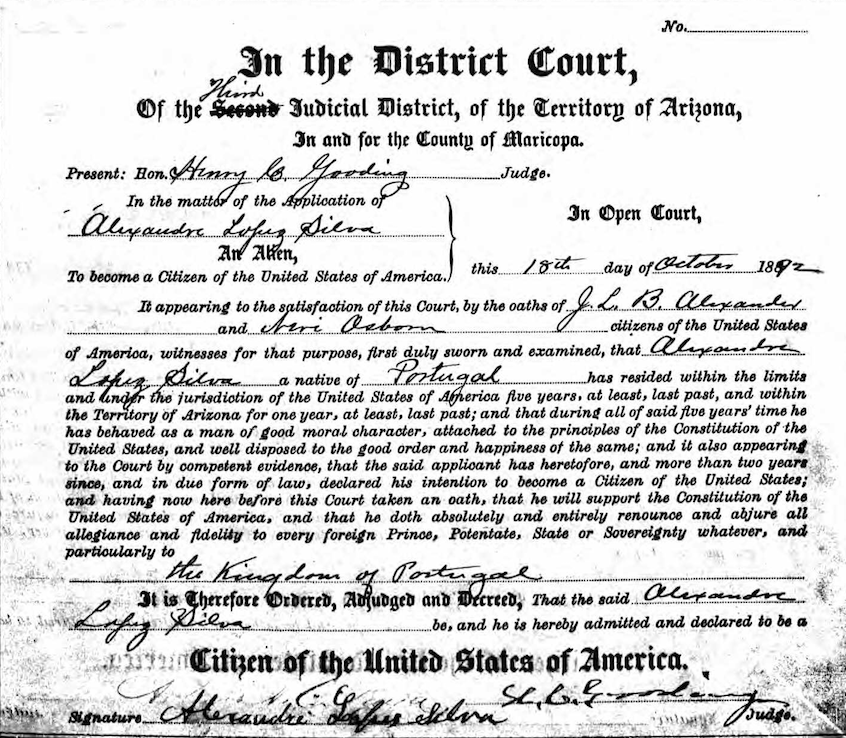 No.
In the District Court,
Third
Of the Second Judicial District, of the Territory of Arizona,
In and for the County of Maricopa.
Present: Hon. Henry C. Gooding Judge.
In the matter of the Application of
Alexandre Lopez Silva
An Alien,
To become a Citizen of the United States of America.
In Open Court,
this 18th day of October 1892
It appearing to the satisfaction of this Court, by the oaths of J. L. B. Alexander
and Neri Osborn citizens of the United States
of America, witnesses for that purpose, first duly sworn and examined, that Alexandre
Lopez Silva a native of Portugal has resided within the limits
and under the jurisdiction of the United States of America five years, at least, last past, and within
the Territory of Arizona for one year, at least, last past; and that during all of said five years' time he
has behaved as a man of good moral character, attached to the principles of the Constitution of the
United States, and well disposed to the good order and happiness of the same; and it also appearing
to the Court by competent evidence, that the said applicant has heretofore, and more than two years
since, and in due form of law, declared his intention to become a Citizen of the United States;
and having now here before this Court taken an oath, that he will support the Constitution of the
United States of America, and that he doth absolutely and entirely renounce and abjure all
allegiance and fidelity to every foreign Prince, Potentate, State or Sovereignty whatever, and
particularly to
the Kingdom of Portugal
It is Therefore Ordered, Adjudged and Decreed, That the said Alexandre
Lopez Silva be, and he is hereby admitted and declared to be a
Citizen of the United States of America.
H. C. Gooding
Signature Alexandre Lopes Silva Judge.